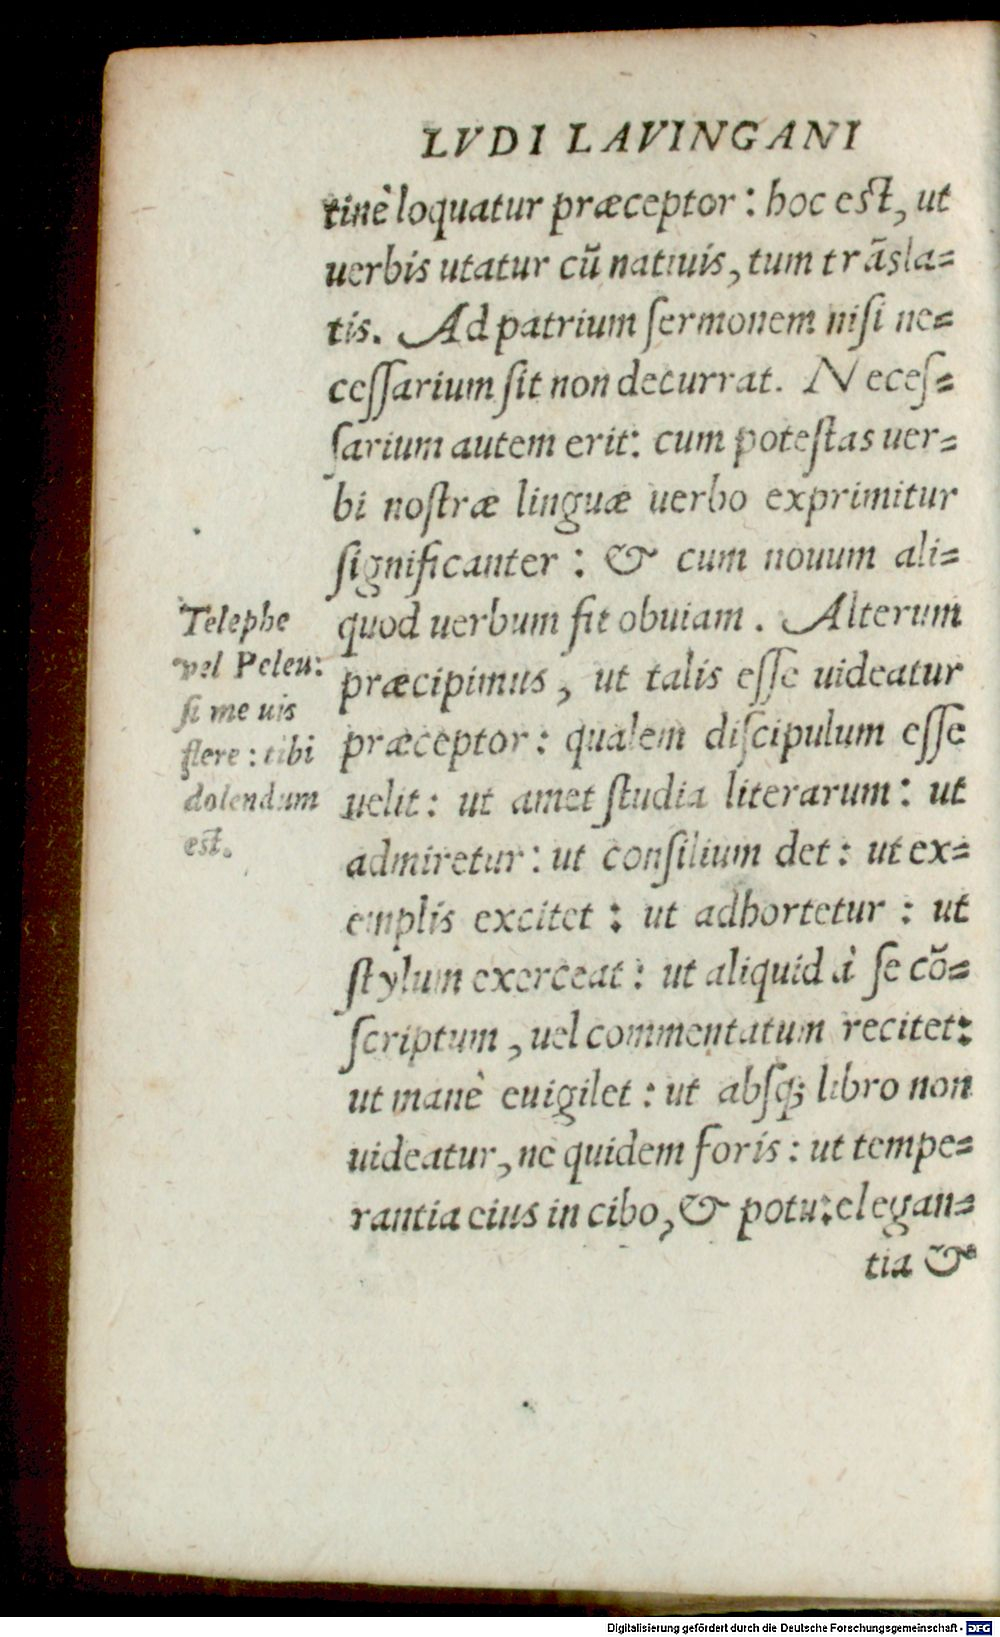 LVDI LAVINGANI
tinè loquatur præceptor: hoc est, ut
uerbis utatur cũ natiuis, tum trãsla=
tis. Ad patrium sermonem nisi ne=
cessarium sit non decurrat. Neces=
sarium autem erit: cum potestas uer=
bi nostræ linguæ uerbo exprimitur
significanter: & cum nouum ali=
quod uerbum fit obuiam. Alterum
præcipimus, ut talis esse uideatur
præceptor: qualem discipulum esse
uelit: ut amet studia literarum: ut
admiretur: ut consilium det: ut ex=
emplis excitet: ut adhortetur: ut
stylum exerceat: ut aliquid à se cõ=
scriptum, uel commentatum recitet:
ut manè euigilet: ut absq; libro non
uideatur, ne quidem foris: ut tempe=
rantia eius in cibo, & potu: elegan=
tia &
Telephe
vel Peleu:
si me uis
flere: tibi
dolendum
est.
Digitalisierung gefördert durch die Deutsche Forschungsgemeinschaft - DFG